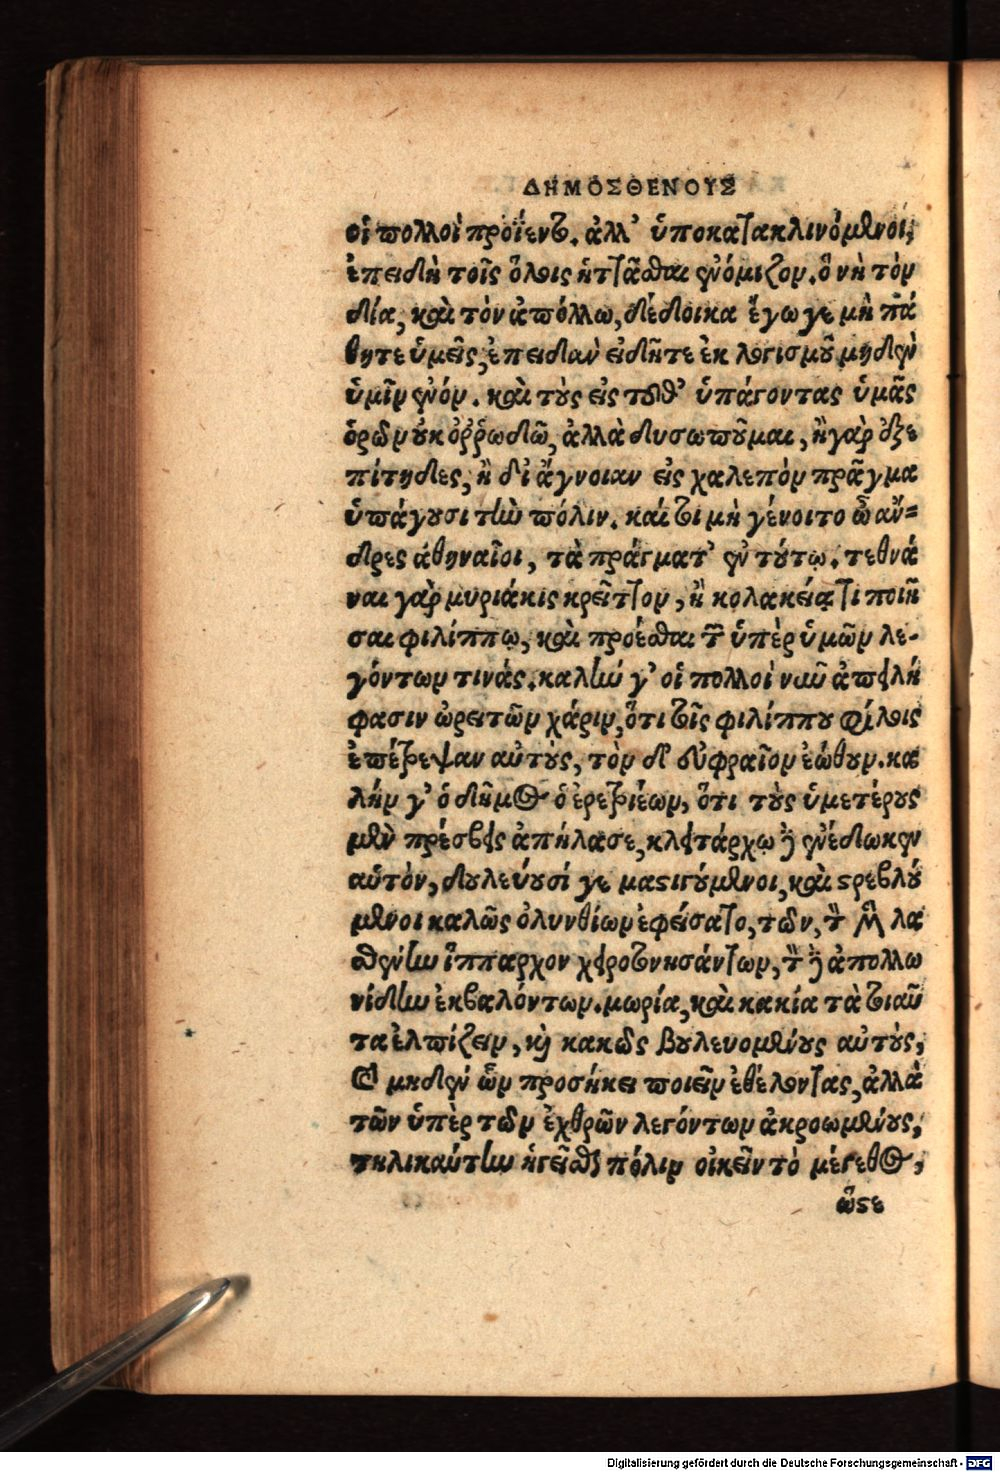 ΔΗΜΟΣΘΕΝΟΥΣ
οἱ πολλοὶ προΐεντο. ἀλλ' ὑποκατακλινόμενοι,
ἐπειδὴ τοῖς ὅλοις ἡττᾶσθαι ἐνόμιζον. ὃ νὴ τὸν
δία, καὶ τὸν ἀπόλλω, δέδοικα ἔγωγε μὴ πά
θητε ὑμεῖς, ἐπειδὰν εἰδῆτε ἐκ λογισμοῦ μηδὲν
ὑμῖν ἐνόν. καὶ τοὺς εἰς τοῦθ' ὑπάγοντας ὑμᾶς
ὁρῶν οὐκ ὀῤῥωδῶ, ἀλλὰ δυσωποῦμαι, ἢ γὰρ ἐξε
πίτηδες, ἢ δι' ἄγνοιαν εἰς χαλεπὸν πρᾶγμα
ὑπάγουσι τὴν πόλιν. καίτοι μὴ γένοιτο ὦ ἄν=
δρες ἀθηναῖοι, τὰ πράγματ' ἐν τούτῳ. τεθνά
ναι γὰρ μυριάκις κρεῖττον, ἢ κολακείᾳ τι ποιῆ
σαι φιλίππῳ, καὶ προέσθαι τῶν ὑπὲρ ὑμῶν λε-
γόντων τινάς. καλήν γ' οἱ πολλοὶ νῦν ἀπειλή
φασιν ὠρειτῶν χάριν, ὅτι τοῖς φιλίππου φίλοις
ἐπέτρεψαν αὑτοὺς, τὸν δ' εὐφραῖον ἐώθουν. κα
λήν γ' ὁ δῆμος ὁ ἐρετριέων, ὅτι τοὺς ὑμετέρους
μὲν πρέσβεις ἀπήλασε, κλειτάρχῳ δὲ ἐνέδωκεν
αὑτὸν, δουλεύουσί γε μαστιγούμενοι, καὶ στρεβλού
μενοι καλῶς ὀλυνθίων ἐφείσατο, τῶν, τὸν μὲν λα
σθένην ἵππαρχον χειροτονησάντων, τὸν δὲ ἀπολλω
νίδην ἐκβαλόντων. μωρία, καὶ κακία τὰ τοιαῦ
τα ἐλπίζειν, καὶ κακῶς βουλευομένους αὑτοὺς,
καὶ μηδὲν ὧν προσήκει ποιεῖν ἐθέλοντας, ἀλλὰ
τῶν ὑπὲρ τῶν ἐχθρῶν λεγόντων ἀκροωμένους,
τηλικαύτην ἡγεῖσθαι πόλιν οἰκεῖν τὸ μέγεθος,
ὥστε
Digitalisierung gefördert durch die Deutsche Forschungsgemeinschaft - DFG